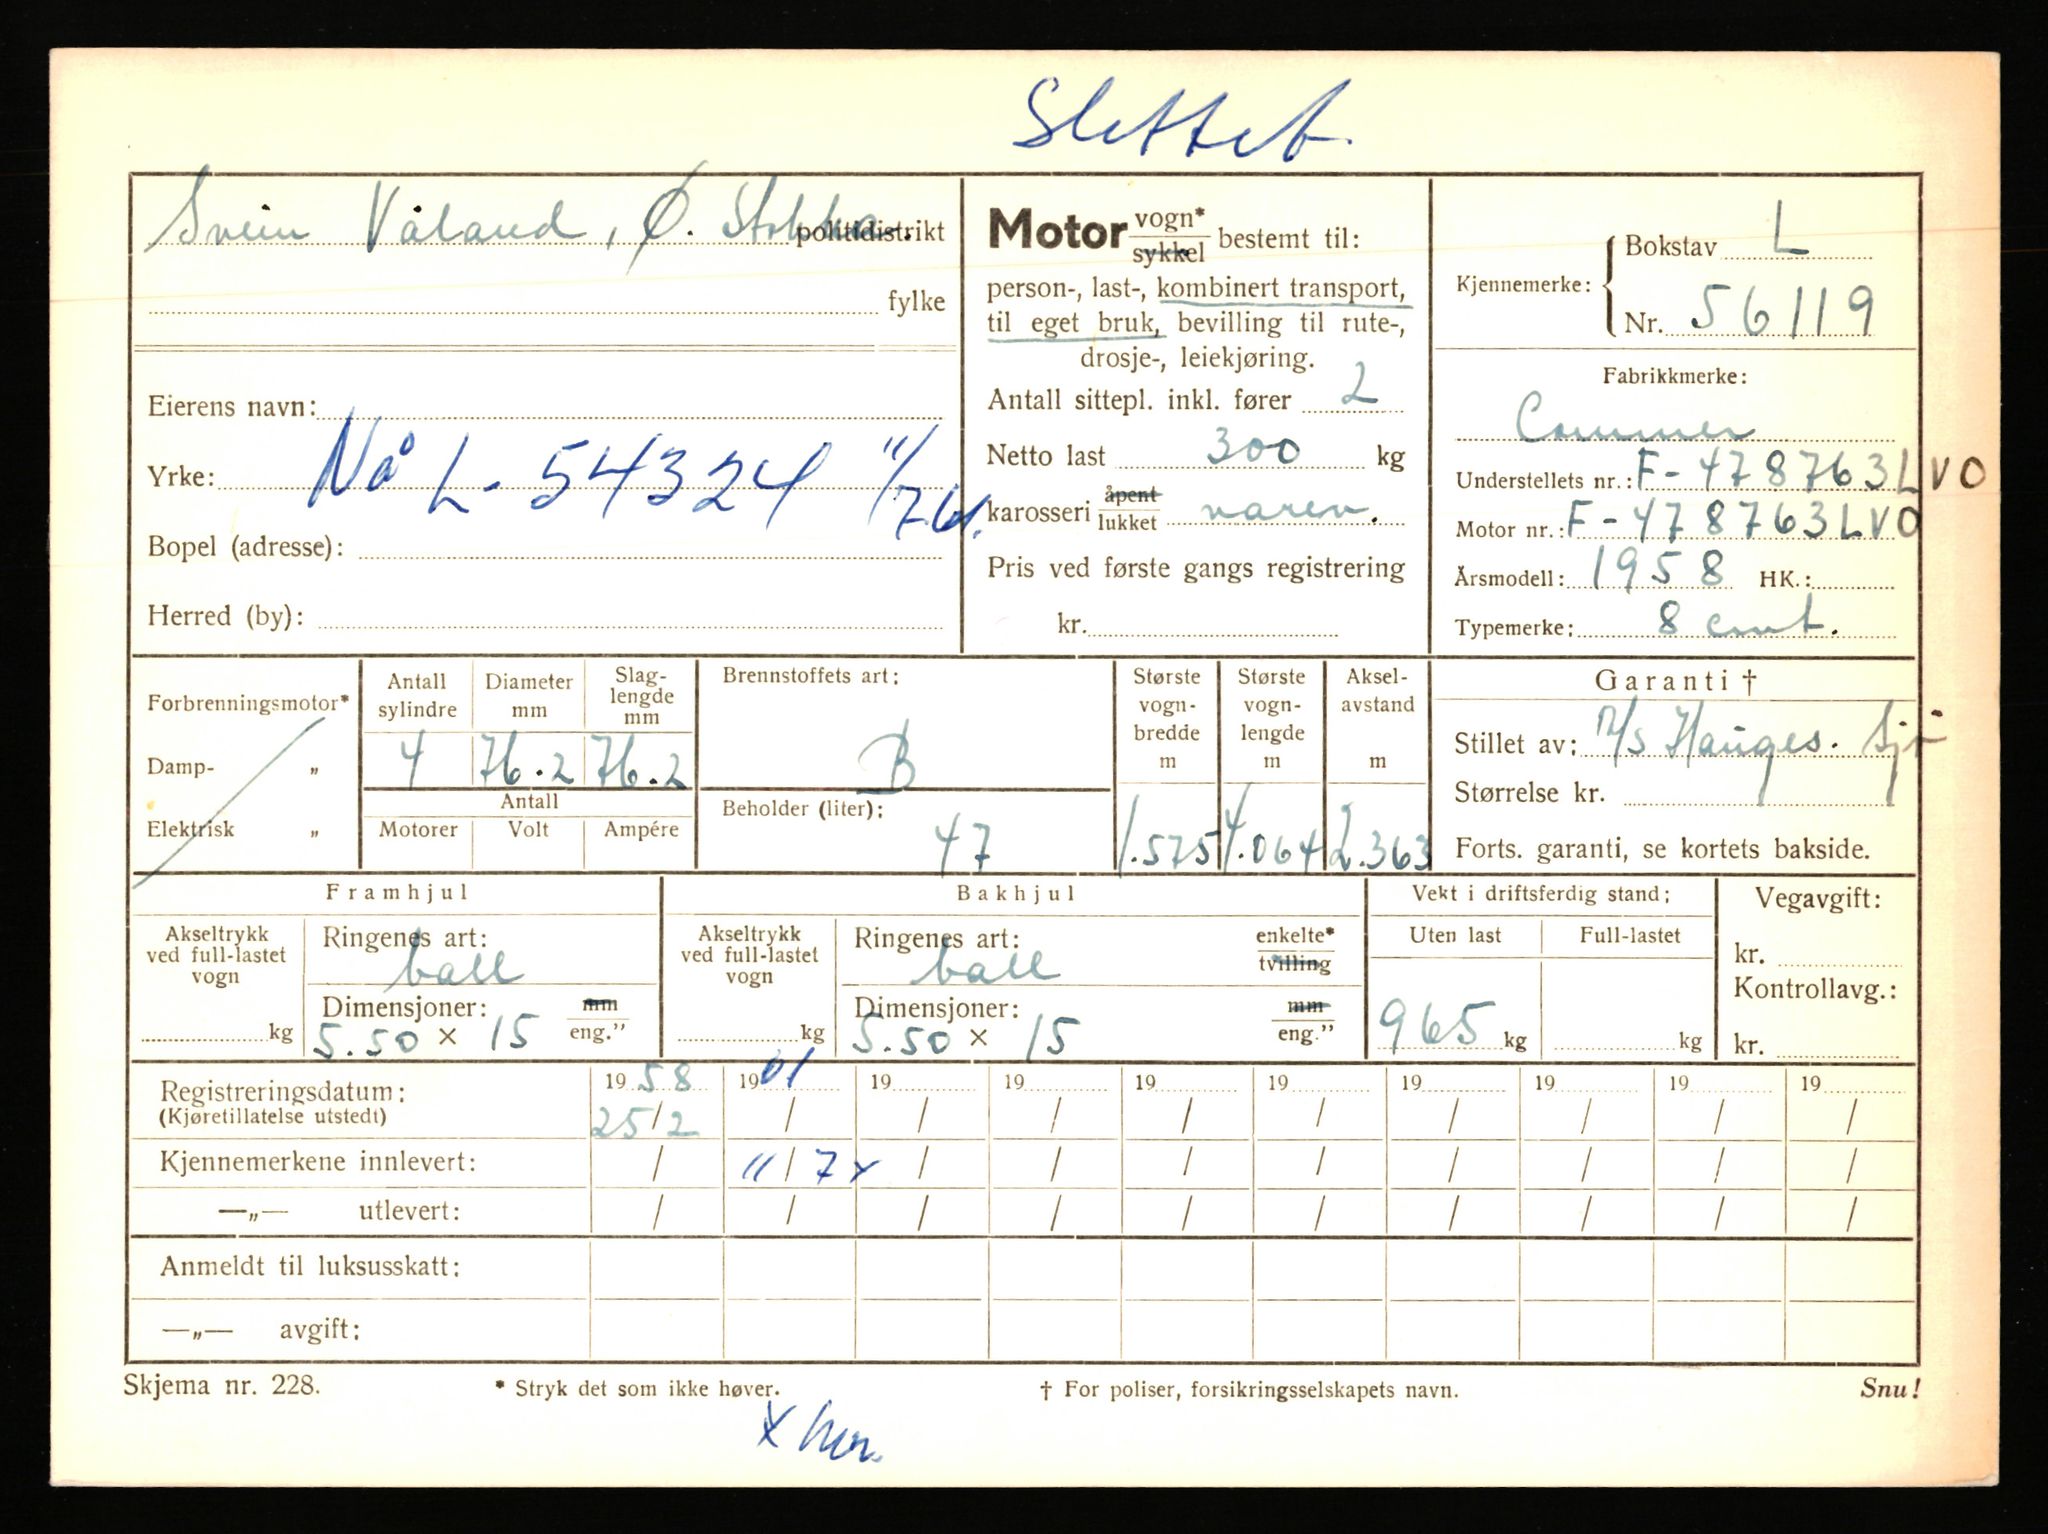 Slettet
Svein Våland, Ø. Stokka. politidistrikt
fylke
Eierens navn:
Yrke: Nå L-54324 11/7 61.
Bopel (adresse):
Herred (by):
Motor vogn* sykkel bestemt til:
person-, last-, kombinert transport,
til eget bruk, bevilling til rute-,
drosje-, leiekjøring.
Antall sittepl. inkl. fører 2
Netto last 300 kg
karosseri åpent lukket varev.
Pris ved første gangs registrering
kr.
Kjennemerke: Bokstav L
Nr. 56119
Fabrikkmerke:
Commer
Understellets nr.: F-478763LVO
Motor nr.: F-478763LVO
Årsmodell: 1958 HK.:
Typemerke: 8 cwt.
Forbrenningsmotor*
Damp- „
Elektrisk „
Antall sylindre Diameter mm Slag-lengde mm
4 76.2 76.2
Antall
Motorer Volt Ampére
Brennstoffets art:
B
Beholder (liter):
47
Største vogn-bredde m
1.575
Største vogn-lengde m
4.064
Aksel-avstand m
2.363
Garanti †
Stillet av: Hauges. Sj
Størrelse kr.
Forts. garanti, se kortets bakside.
Framhjul
Akseltrykk ved full-lastet vogn
kg
Ringenes art:
ball
Dimensjoner: mm
5.50 × 15 eng."
Bakhjul
Akseltrykk ved full-lastet vogn
kg
Ringenes art: enkelte*
ball tvilling
Dimensjoner: mm
5.50 × 15 eng."
Vekt i driftsferdig stand:
Uten last Full-lastet
965 kg kg
Vegavgift:
kr.
Kontrollavg.:
kr.
Registreringsdatum: 1958 1961 19 19 19 19 19 19 19 19
(Kjøretillatelse utstedt) 25/2 / / / / / / / / /
Kjennemerkene innlevert: / 11/7 x / / / / / / / /
—„— utlevert: / / / / / / / / / /
Anmeldt til luksusskatt:
—„— avgift:
Skjema nr. 228. * Stryk det som ikke høver. † For poliser, forsikringsselskapets navn. Snu!
x